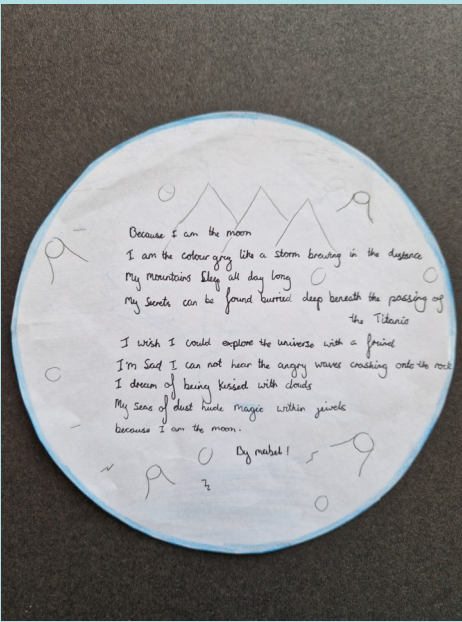 Because I am the moon
I am the colour grey like a storm brewing in the distance
My mountains sleep all day long
My secrets can be found burried deep beneath the passing of
the Titanic
I wish I could explore the universe with a freind
I'm sad I can not hear the angry waves crashing onto the rock
I dream of being kissed with clouds
My seas of dust hide magic within jewels
because I am the moon.
By mabel!